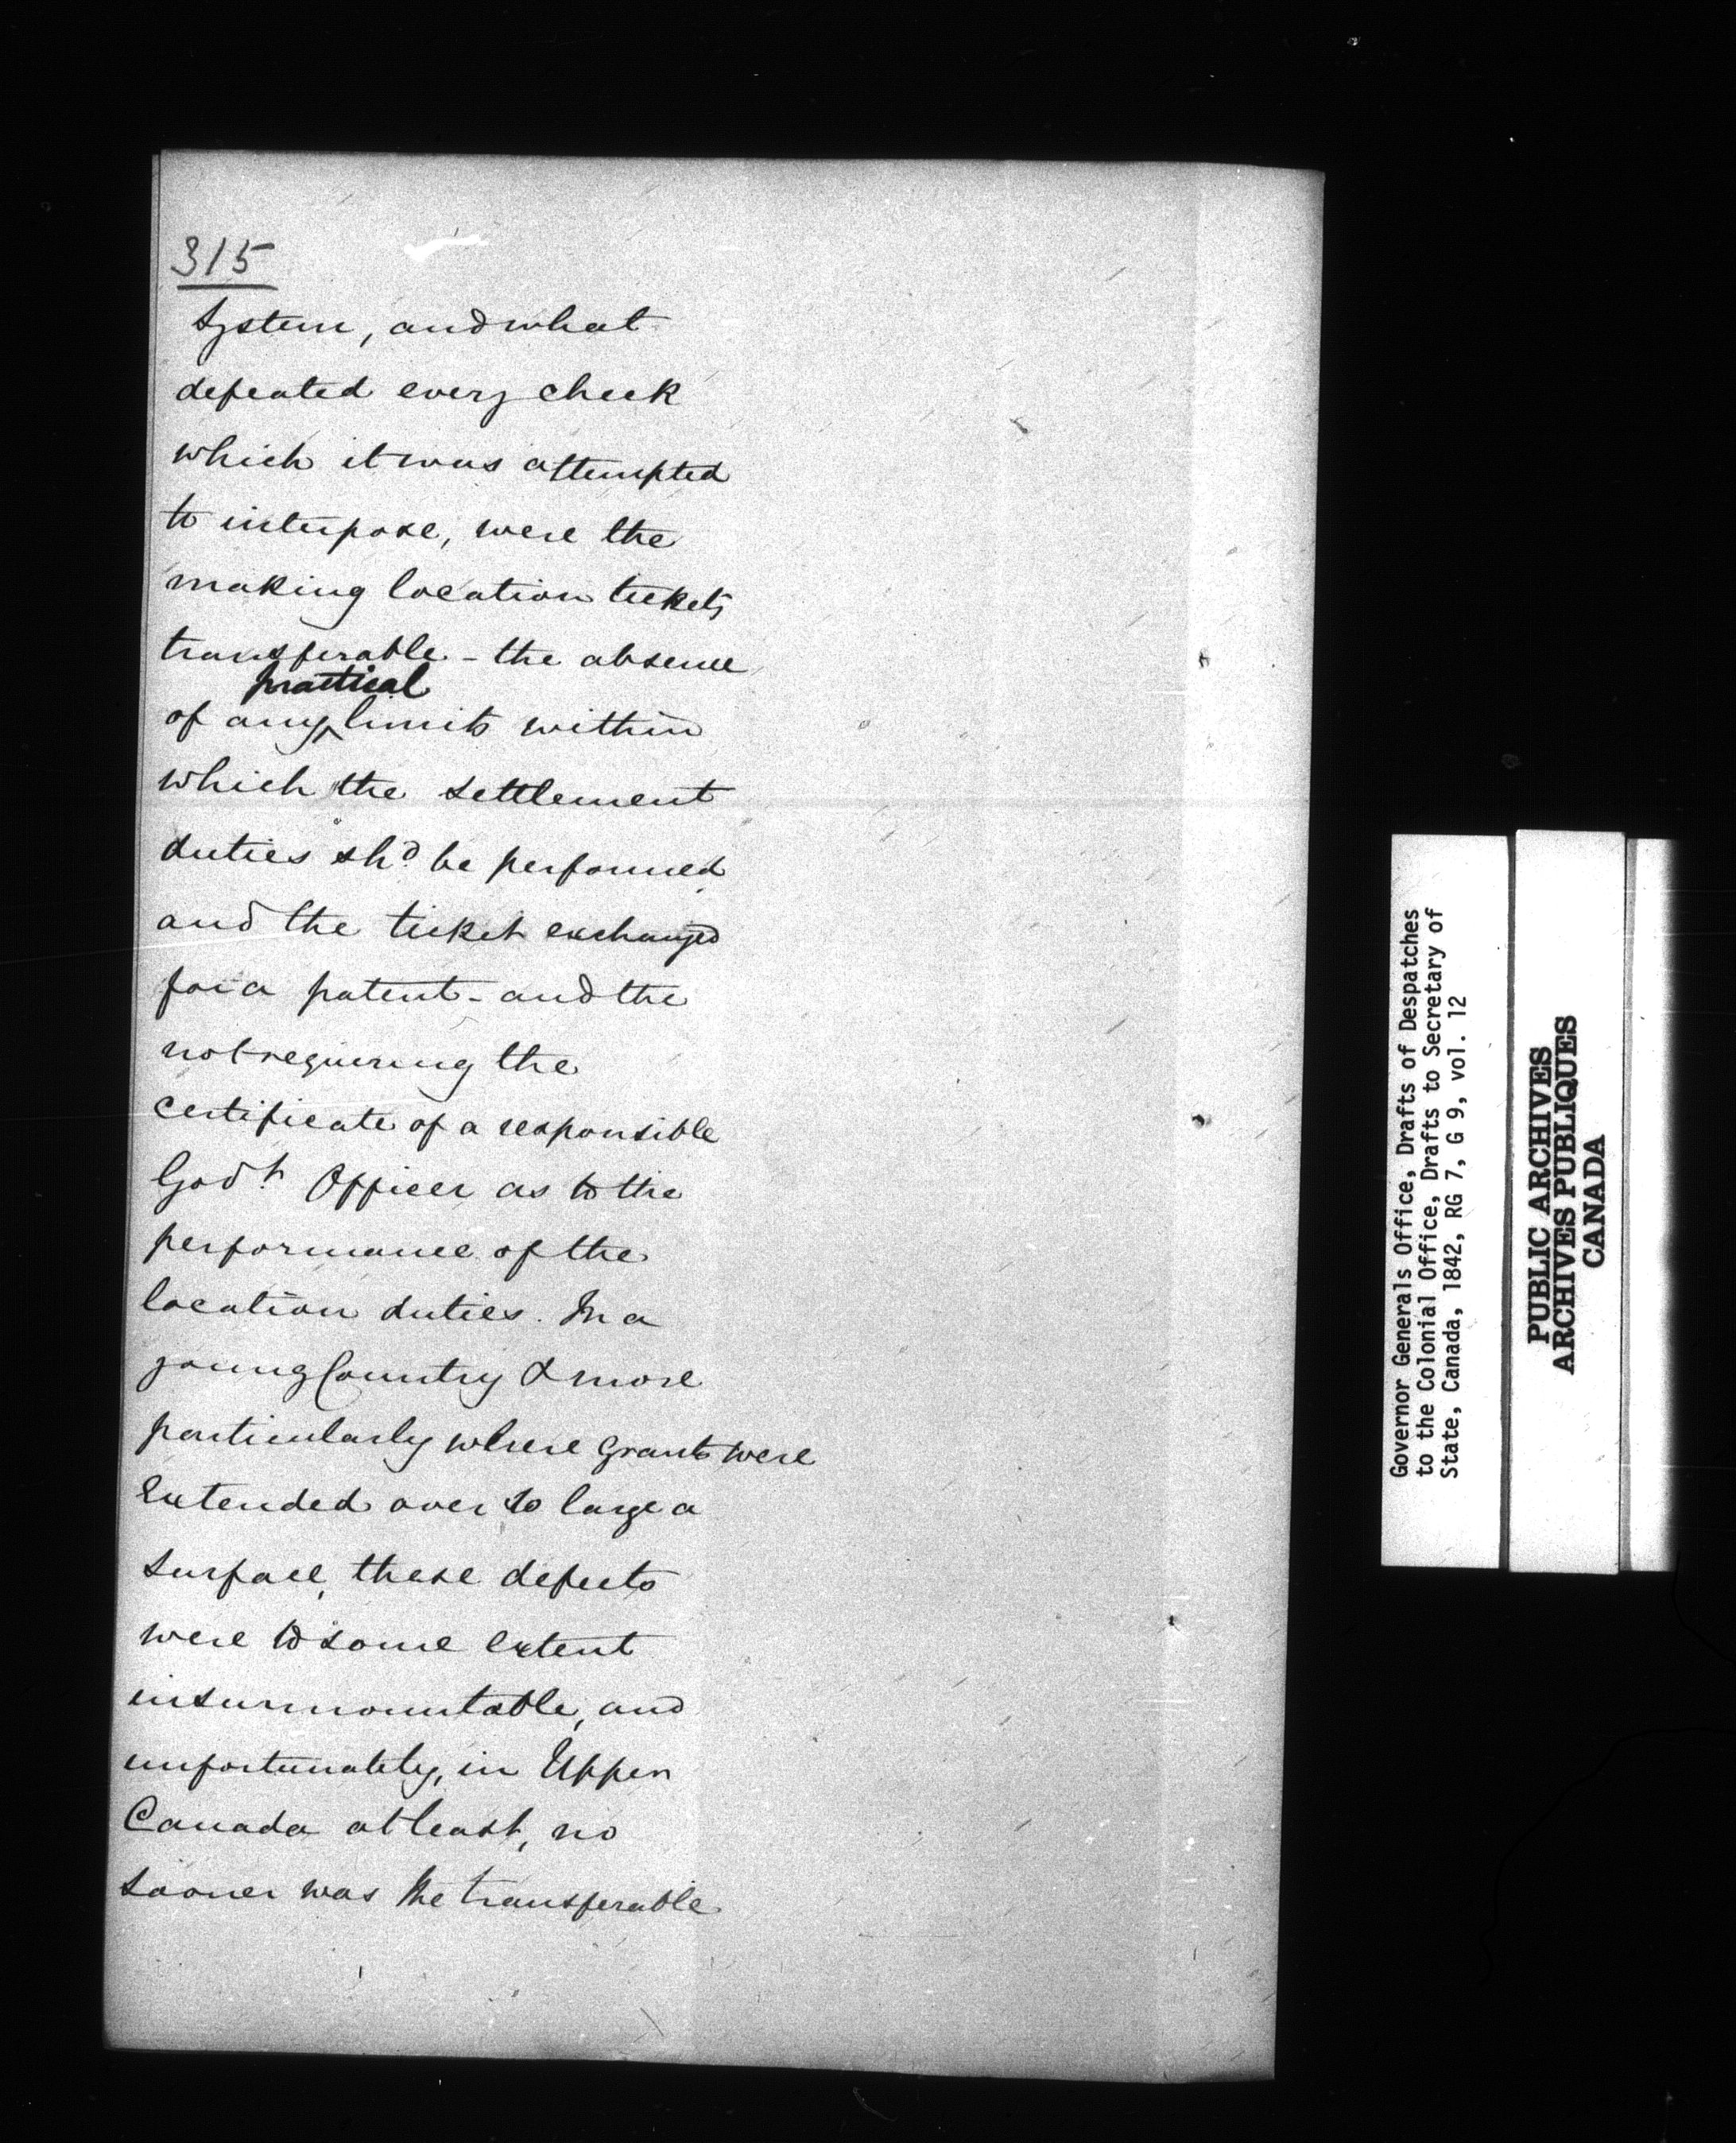 315
System, and what
defeated every check
which it was attempted
to interpose, were the
making location tickets
transferable - the absence
practical
of any ^ limits within
which the settlement
duties shd be performed
and the ticket exchanged
for a patent - and the
not requiring the
certificate of a responsible
Govt Officer as to the
performance of the
location duties. In a
young Country & more
particularly where grants were
extended over so large a
surface, these defects
were to some extent
insurmountable, and
unfortunately, in Upper
Canada at least, no
sooner was the transferable
Governor Generals Office, Drafts of Despatches
to the Colonial Office, Drafts to Secretary of
State, Canada, 1842, RG 7, G 9, vol. 12
PUBLIC ARCHIVES
ARCHIVES PUBLIQUES
CANADA